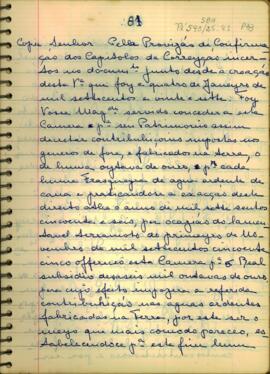 61
Copia Senhor Pella Provizão de Confirma
ção dos Capitolos da Correyção incer
tos nos docum.tos junto desde a creação
desta V.a que foy a quatro de Janeyro de
mil settecentos e vinte e sette foy
Vossa Mag.de servido conceder a esta
Camera p.a seu Patrimonio assim
desetar contribuhições impostas nos
generos de fora, e fabricados na terra, o
de huma oytava de ouro, p.r cada
huma de agua ardente de
cana e praticandoce a exacção deste
direito athe o anno de mil sette centos
cincoenta e seis, por ocazião do lamen
tavel Terramoto do primeyro de No
vembro de mil settecentos cincoenta e
cinco offereceo esta Camera p.a o Real
subsidio mil outavas de ouro
para cujo effeito impozera a referida
contribuhição nas agoas ardentes
fabricadas na Terra, por este ser o
meyo que mais comodo pareceo, es
tabelecendoce p.a este fim huma